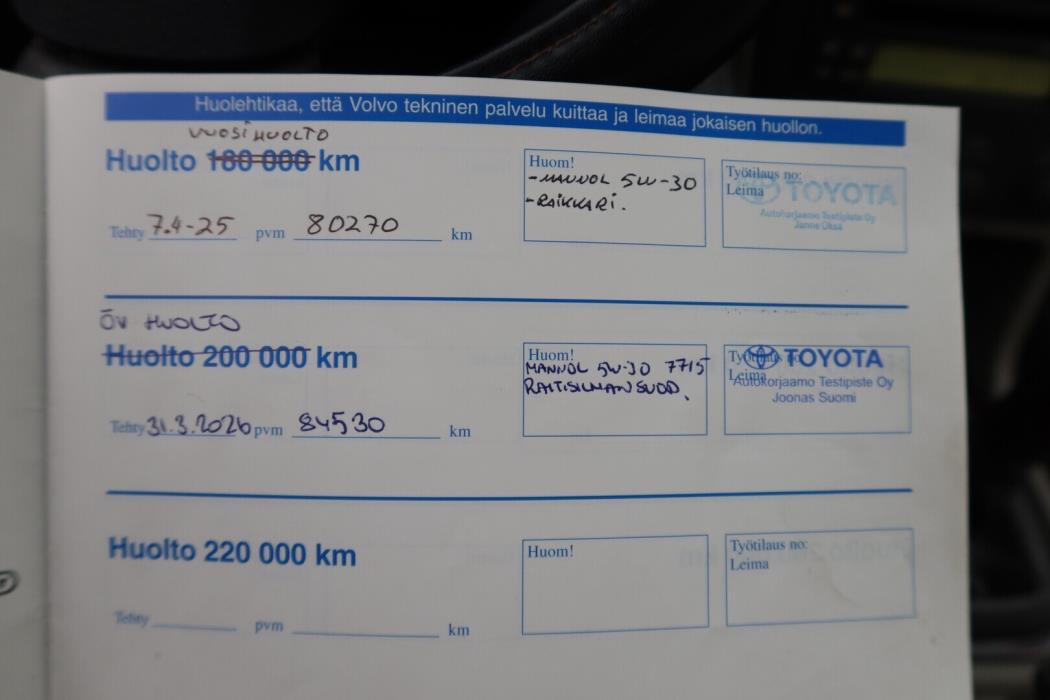 Huolehtikaa, että Volvo tekninen palvelu kuittaa ja leimaa jokaisen huollon.
VUOSIHUOLTO
Huolto 180 000 km
Huom!
-MANNOL 5W-30
-RAIKKARI.
Työtilaus no:
Leima
TOYOTA
Autokorjaamo Testipiste Oy
Janne Oksa
Tehty 7.4-25 pvm 80270 km
ÖV HUOLTO
Huolto 200 000 km
Huom!
MANNOL 5W-30 7715
RAITISILMANSUOD.
Työtilaus no:
Leima
TOYOTA
Autokorjaamo Testipiste Oy
Joonas Suomi
Tehty 31.3.2026 pvm 84530 km
Huolto 220 000 km
Huom!
Työtilaus no:
Leima
Tehty pvm km